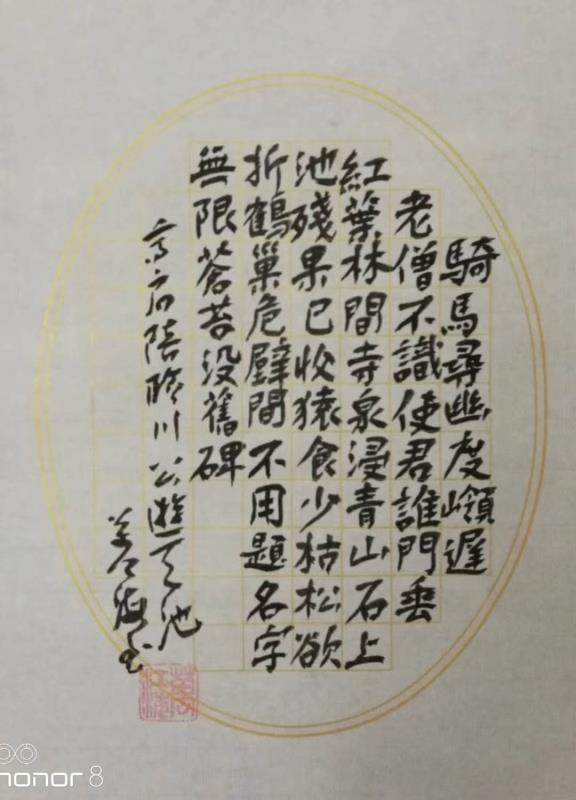 騎馬尋幽度嶺遲
老僧不識使君誰門垂
紅葉林間寺泉浸青山石上
池殘果已收猿食少枯松欲
折鶴巢危壁間不用題名字
無限蒼苔没舊碑
高启陪臨川公遊天池
海书
honor 8